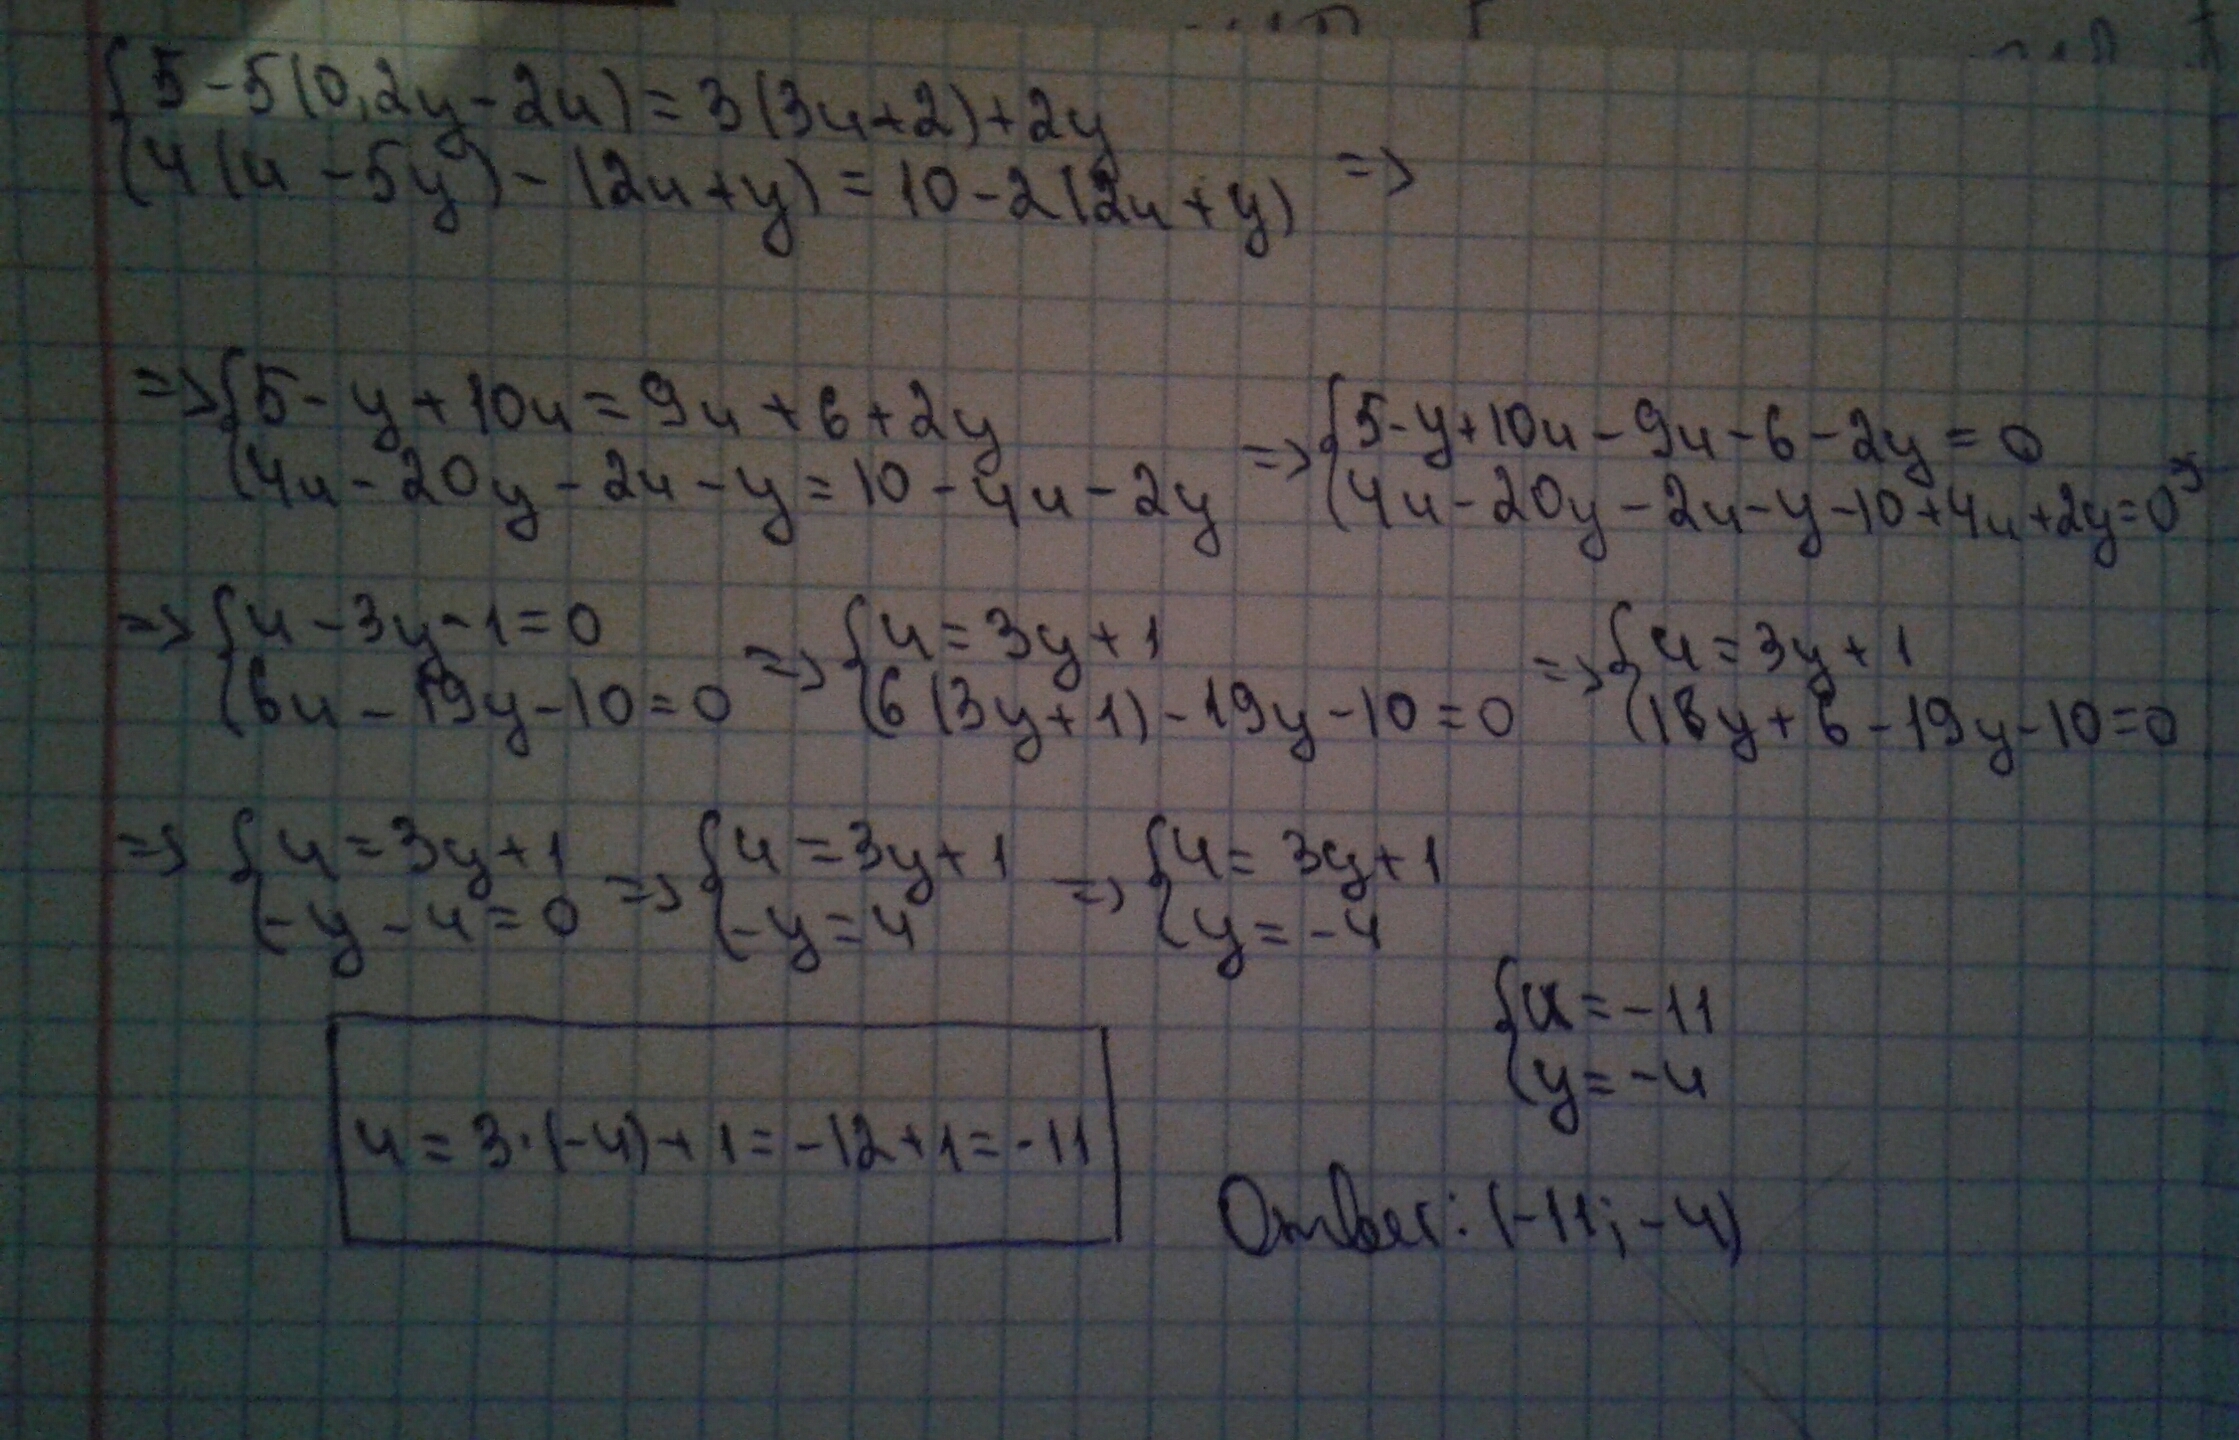 {5-5(0,2y-2u)=3(3u+2)+2y
{4(u-5y)-(2u+y)=10-2(2u+y) =>
=>{5-y+10u=9u+6+2y
{4u-20y-2u-y=10-4u-2y
=>{5-y+10u-9u-6-2y=0
{4u-20y-2u-y-10+4u+2y=0
=>{u-3y-1=0
{6u-19y-10=0
=>{u=3y+1
{6(3y+1)-19y-10=0
=>{u=3y+1
{18y+6-19y-10=0
=>{u=3y+1
{-y-4=0
=>{u=3y+1
{-y=4
=>{u=3y+1
{y=-4
{u=-11
{y=-4
u=3·(-4)+1=-12+1=-11
Ответ: (-11; -4)